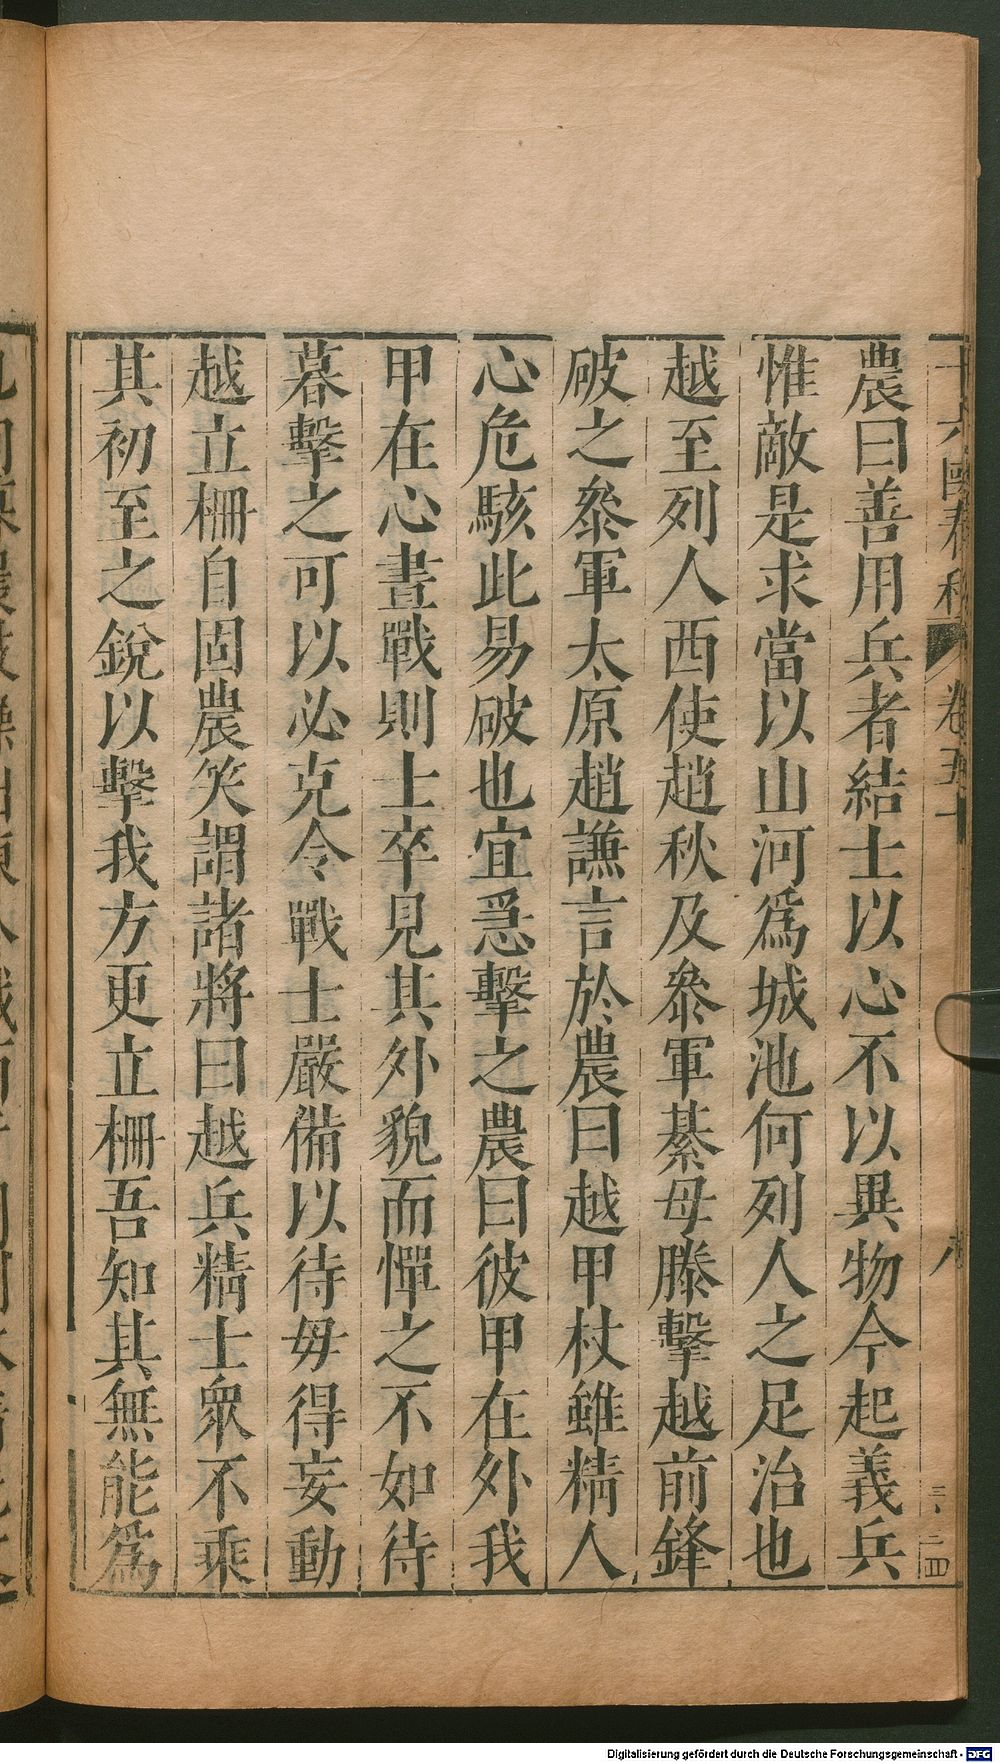 十六國春秋 卷五十 八
農曰善用兵者結士以心不以異物今起義兵
惟敵是求當以山河爲城池何列人之足治也
越至列人西使趙秋及叅軍綦毋滕擊越前鋒
破之叅軍太原趙謙言於農曰越甲杖雖精人
心危駭此易破也宜急擊之農曰彼甲在外我
甲在心晝戰則士卒見其外貌而憚之不如待
暮擊之可以必克令戰士嚴備以待毋得妄動
越立柵自固農笑謂諸將曰越兵精士衆不乘
其初至之銳以擊我方更立柵吾知其無能爲
Digitalisierung gefördert durch die Deutsche Forschungsgemeinschaft - DFG